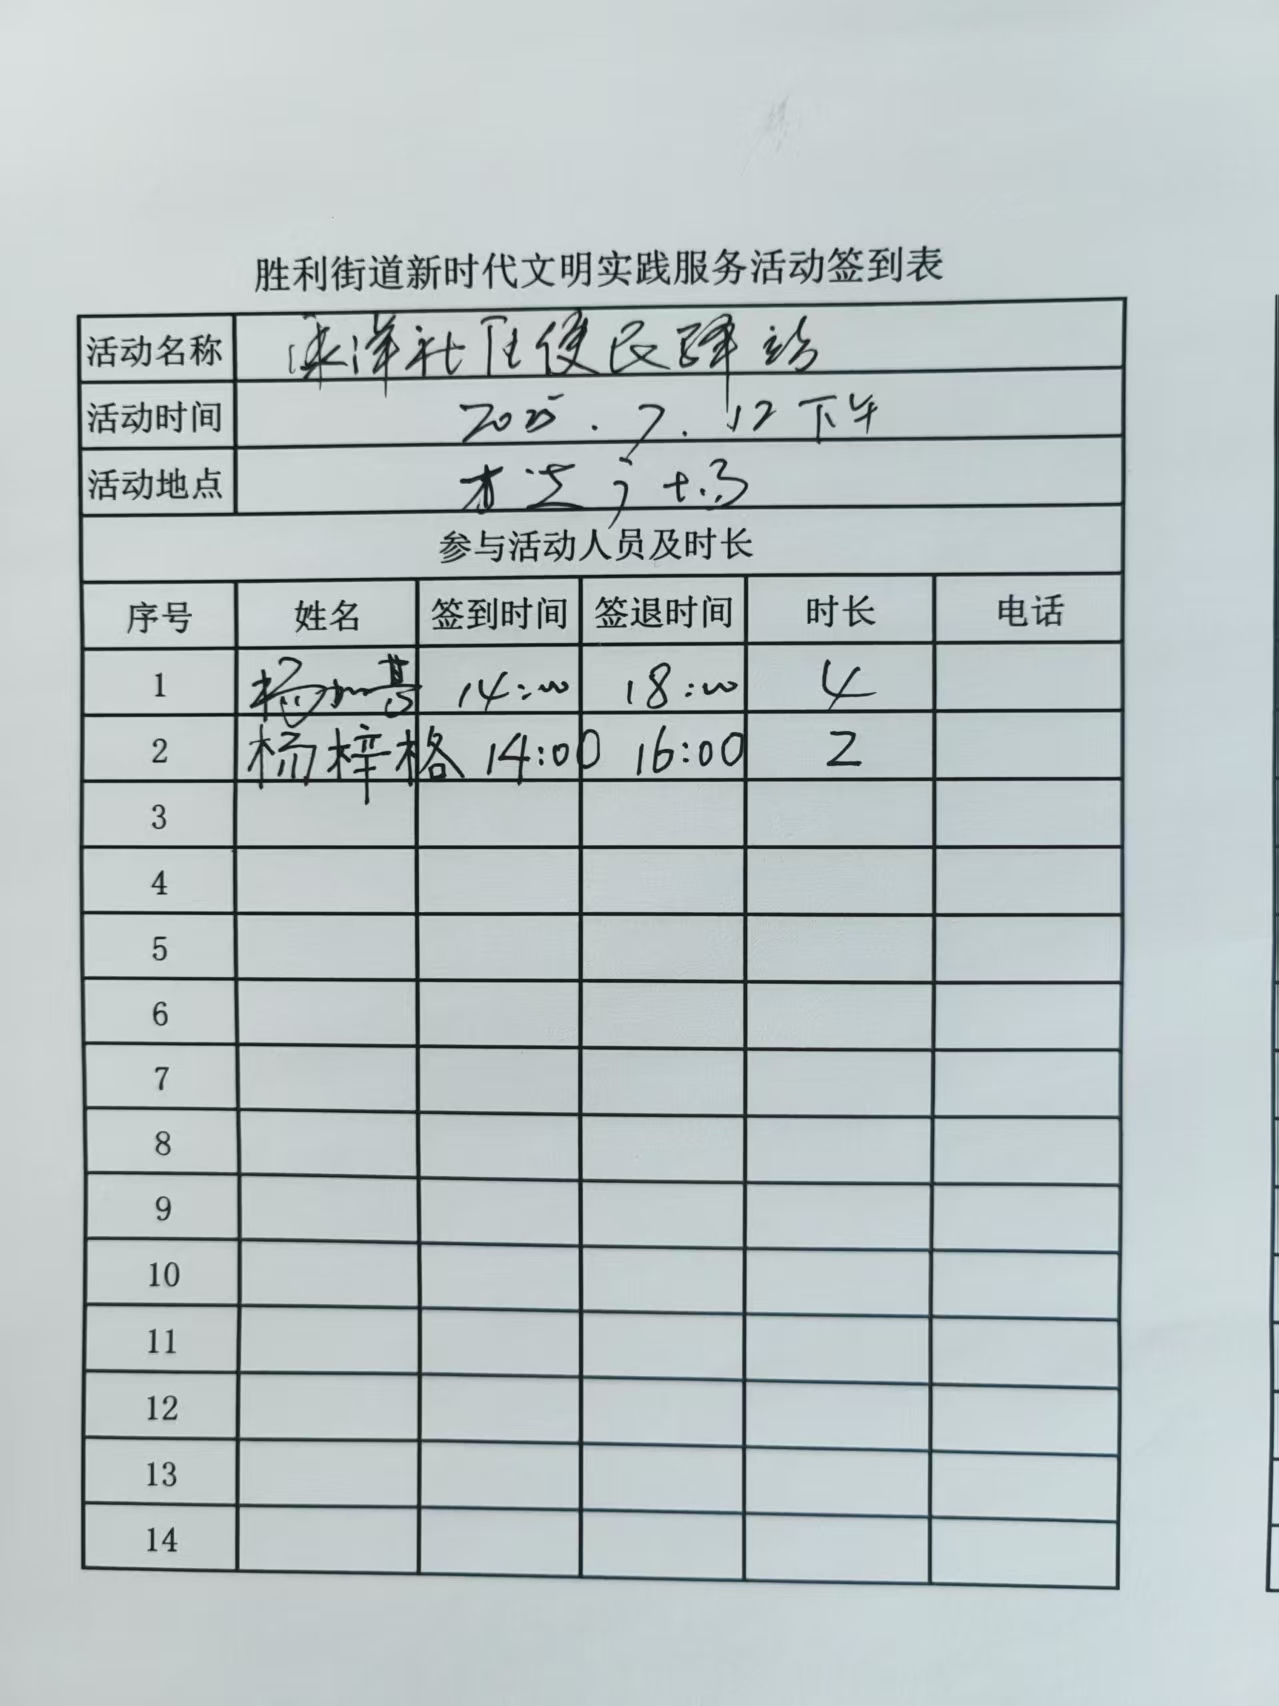 胜利街道新时代文明实践服务活动签到表
活动名称 洋社区便民驿站
活动时间 2025.7.12下午
活动地点 广场
参与活动人员及时长
序号 姓名 签到时间 签退时间 时长 电话
1 杨 14:00 18:00 4
2 杨梓格 14:00 16:00 2
3
4
5
6
7
8
9
10
11
12
13
14